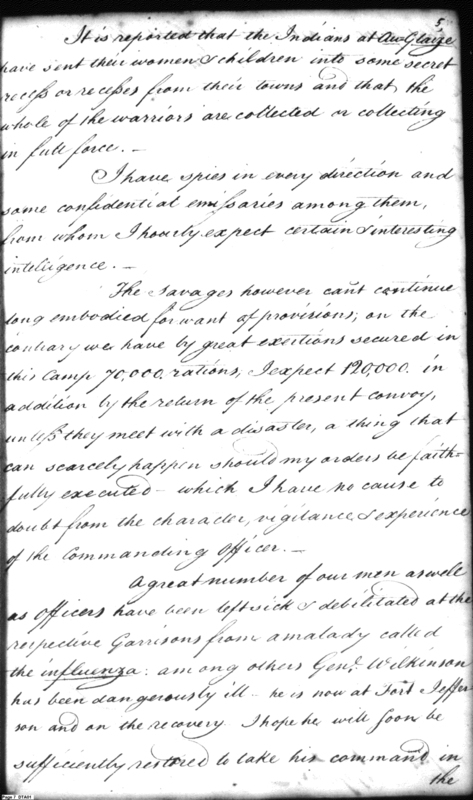 5
It is reported that the Indians at Au Glaize
have sent their women & children into some secret
recess or recesses from their towns and that the
whole of the warriors are collected or collecting
in full force. —
I have spies in every direction and
some confidential emissaries among them,
from whom I hourly expect certain & interesting
intelligence. —
The Savages however can't continue
long embodied for want of provisions; on the
contrary we have by great exertions secured in
this Camp 70,000 rations, I expect 120,000 in
addition by the return of the present convoy,
unless they meet with a disaster, a thing that
can scarcely happen should my orders be faith=
fully executed – which I have no cause to
doubt from the character, vigilance & experience
of the Commanding Officer. —
A great number of our men as well
as Officers have been left sick & debilitated at the
respective Garrisons from a malady called
the influenza: among others Genl. Wilkinson
has been dangerously ill – he is now at Fort Jeffer
son and on the recovery I hope he will soon be
sufficiently restored to take his command in
the